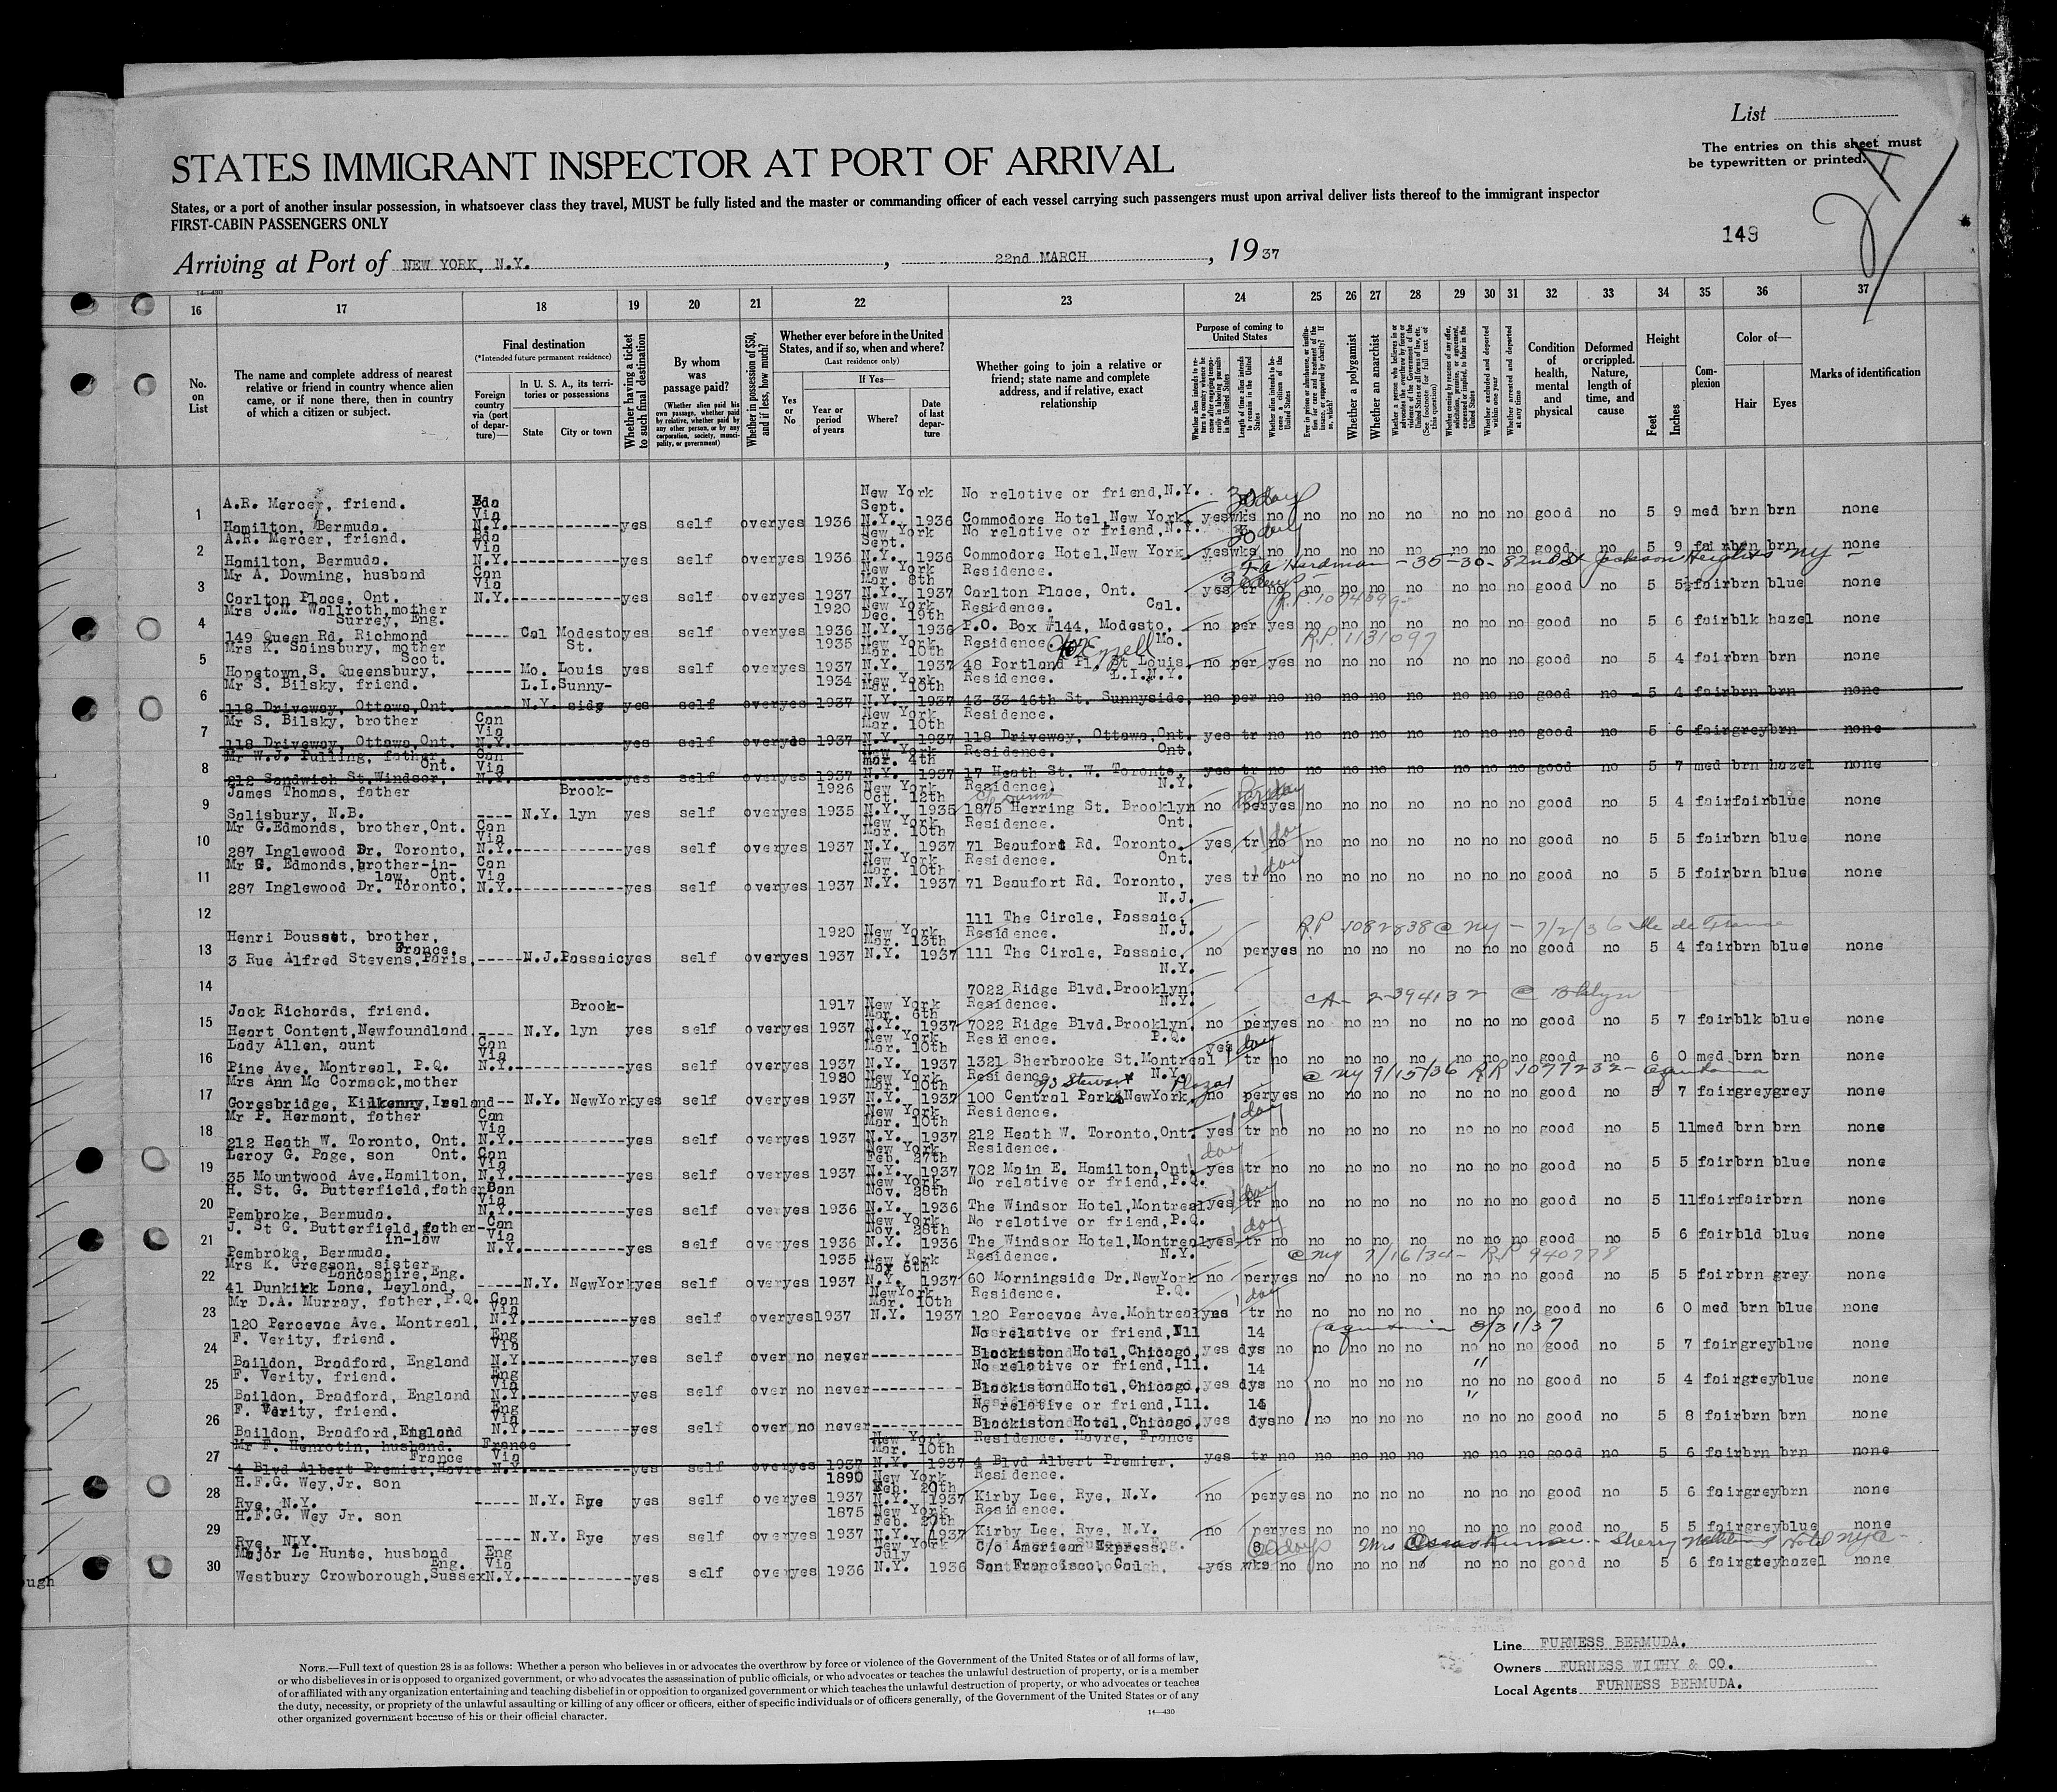 List
The entries on this sheet must
be typewritten or printed.
STATES IMMIGRANT INSPECTOR AT PORT OF ARRIVAL
States, or a port of another insular possession, in whatsoever class they travel, MUST be fully listed and the master or commanding officer of each vessel carrying such passengers must upon arrival deliver lists thereof to the immigrant inspector
FIRST-CABIN PASSENGERS ONLY
149
Arriving at Port of NEW YORK, N.Y. , 22nd MARCH , 1937
14-430
16 17 18 19 20 21 22 23 24 25 26 27 28 29 30 31 32 33 34 35 36 37
No. on List
The name and complete address of nearest relative or friend in country whence alien came, or if none there, then in country of which a citizen or subject.
Final destination
(*Intended future permanent residence)
Foreign country via (port of departure)—
In U. S. A., its territories or possessions
State City or town
Whether having a ticket to such final destination
By whom was passage paid?
(Whether alien paid his own passage, whether paid by relative, whether paid by any other person, or by any corporation, society, municipality, or government)
Whether in possession of $50, and if less, how much?
Whether ever before in the United States, and if so, when and where?
(Last residence only)
Yes or No
If Yes—
Year or period of years Where? Date of last departure
Whether going to join a relative or friend; state name and complete address, and if relative, exact relationship
Purpose of coming to United States
Whether a polygamist
Whether an anarchist
Condition of health, mental and physical
Deformed or crippled. Nature, length of time, and cause
Height
Feet Inches
Complexion
Color of—
Hair Eyes
Marks of identification
1 A.R. Mercer, friend. Hamilton, Bermuda. Bda Via N.Y. yes self over yes 1936 New York Sept. N.Y. 1936 No relative or friend, N.Y. Commodore Hotel, New York yes wks no no no no no no no no good no 5 9 med brn brn none
30 days
2 A.R. Mercer, friend. Hamilton, Bermuda. Bda Via N.Y. yes self over yes 1936 New York Sept. N.Y. 1936 No relative or friend, N.Y. Commodore Hotel, New York yes wks no no no no no no no no good no 5 9 fair brn brn none
30 days
Hardman - 35-30-82nd St Jackson Heights NY
3 Mr A. Downing, husband Carlton Place, Ont. Can Via N.Y. yes self over yes 1937 New York Mar. 8th N.Y. 1937 Residence. Carlton Place, Ont. yes tr no no no no no no no no good no 5 5½ fair brn blue none
4 Mrs J.M. Wallroth, mother Surrey, Eng. 149 Queen Rd. Richmond Cal Modesto yes self over yes 1920 1936 New York Dec. 19th N.Y. 1936 Residence. Cal. P.O. Box #144, Modesto. no per yes no no no no no no no good no 5 6 fair blk hazel none
R.P. 1131097
5 Mrs K. Sainsbury, mother Scot. Hopetown, S. Queensbury, Mo. St. Louis yes self over yes 1935 1937 New York Mar. 10th N.Y. 1937 Residence Mo. 48 Portland Pl. St Louis no per yes no no no no no no no good no 5 4 fair brn brn none
6 Mr S. Bilsky, friend. 118 Driveway, Ottawa, Ont. L.I. N.Y. Sunny-side yes self over yes 1934 1937 New York Mar. 10th N.Y. 1937 Residence. L.I.N.Y. 43-33-46th St. Sunnyside, no per no no no no no no no no good no 5 4 fair brn brn none
7 Mr S. Bilsky, brother 118 Driveway, Ottawa, Ont. Can Via N.Y. yes self over yes 1937 New York Mar. 10th N.Y. 1937 Residence. 118 Driveway, Ottawa, Ont. yes tr no no no no no no no no good no 5 6 fair grey brn none
8 Mr W.J. Pulling, father Ont. 212 Sandwich St. Windsor, Can Via N.Y. yes self over yes 1937 New York Mar. 4th N.Y. 1937 Residence. Ont. 17 Heath St. W. Toronto. yes tr no no no no no no no no good no 5 7 med brn hazel none
9 James Thomas, father Salisbury, N.B. N.Y. Brook-lyn yes self over yes 1926 1935 New York Oct. 12th N.Y. 1935 Residence) N.Y. 1875 Herring St. Brooklyn no per yes no no no no no no no good no 5 4 fair fair blue none
10 Mr G.Edmonds, brother, Ont. 287 Inglewood Dr. Toronto, Can Via N.Y. yes self over yes 1937 New York Mar. 10th N.Y. 1937 Residence. Ont. 71 Beaufort Rd. Toronto. yes tr no no no no no no no no good no 5 5 fair brn blue none
1 day
11 Mr G. Edmonds, brother-in-law, Ont. 287 Inglewood Dr. Toronto, Can Via N.Y. yes self over yes 1937 New York Mar. 10th N.Y. 1937 Residence. Ont. 71 Beaufort Rd. Toronto, yes tr no no no no no no no no good no 5 5 fair brn blue none
1 day
12 N.J. 111 The Circle, Passaic,
RP 1082838 @ NY - 7/2/36 Ile de France
13 Henri Boussat, brother, France. 3 Rue Alfred Stevens, Paris, N.J. Passaic yes self over yes 1920 1937 New York Mar. 13th N.Y. 1937 Residence. N.J. 111 The Circle, Passaic. no per yes no no no no no no no good no 5 4 fair brn blue none
14 N.Y. 7022 Ridge Blvd. Brooklyn
CA- 2-394132 @ Bklyn
15 Jack Richards, friend. Heart Content, Newfoundland. N.Y. Brook-lyn yes self over yes 1917 1937 New York Mar. 6th N.Y. 1937 Residence. N.Y. 7022 Ridge Blvd. Brooklyn, no per yes no no no no no no no good no 5 7 fair blk blue none
16 Lady Allen, aunt Pine Ave. Montreal, P.Q. Can Via N.Y. yes self over yes 1937 New York Mar. 10th N.Y. 1937 Residence. P.Q. 1321 Sherbrooke St. Montreal yes tr no no no no no no no no good no 6 0 med brn brn none
1 day
@ NY 9/15/36 RP 1077232- Aquitania
17 Mrs Ann Mc Cormack, mother Goresbridge, Kilkenny, Ireland N.Y. NewYork yes self over yes 1920 1937 New York Mar. 10th N.Y. 1937 Residence N.Y. 100 Central Park NewYork, no per yes no no no no no no no good no 5 7 fair grey grey none
Stewart Plaza
18 Mr P. Hermant, father 212 Heath W. Toronto, Ont. Can Via N.Y. yes self over yes 1937 New York Mar. 10th N.Y. 1937 Residence. 212 Heath W. Toronto, Ont. yes tr no no no no no no no no good no 5 11 med brn brn none
1 day
19 Leroy G. Page, son Ont. 35 Mountwood Ave. Hamilton, Can Via N.Y. yes self over yes 1937 New York Feb. 27th N.Y. 1937 Residence. 702 Main E. Hamilton, Ont. yes tr no no no no no no no no good no 5 5 fair brn blue none
1 day
20 H. St. G. Butterfield, father Pembroke, Bermuda. Can Via N.Y. yes self over yes 1936 New York Nov. 28th N.Y. 1936 No relative or friend, P.Q. The Windsor Hotel, Montreal yes tr no no no no no no no no good no 5 11 fair fair brn none
1 day
21 J. St G. Butterfield, father-in-law Pembroke, Bermuda. Can Via N.Y. yes self over yes 1936 New York Nov. 28th N.Y. 1936 No relative or friend, P.Q. The Windsor Hotel, Montreal yes tr no no no no no no no no good no 5 6 fair bld blue none
1 day
@ NY 7/16/34- RP 940778
22 Mrs K. Gregson, sister Lancashire, Eng. 41 Dunkirk Lane, Leyland, N.Y. NewYork yes self over yes 1935 1937 New York May 6th N.Y. 1937 Residence. N.Y. 60 Morningside Dr. NewYork no per yes no no no no no no no good no 5 5 fair brn grey none
23 Mr D.A. Murray, father, P.Q. 120 Percevae Ave. Montreal, Can Via N.Y. yes self over yes 1937 NewYork Mar. 10th N.Y. 1937 Residence. P.Q. 120 Percevae Ave. Montreal yes tr no no no no no no no no good no 6 0 med brn blue none
1 day
Aquitania 3/31/37
24 F. Verity, friend. Baildon, Bradford, England Eng Via N.Y. yes self over no never No relative or friend, Ill Blackiston Hotel, Chicago. yes 14 dys no no no no no no no no good no 5 7 fair grey blue none
25 F. Verity, friend. Baildon, Bradford, England Eng Via N.Y. yes self over no never No relative or friend, Ill. Blackiston Hotel, Chicago. yes 14 dys no no no no no no no no good no 5 4 fair grey blue none
26 F. Verity, friend. Baildon, Bradford, England Eng Via N.Y. yes self over no never No relative or friend, Ill. Blackiston Hotel, Chicago. yes 14 dys no no no no no no no no good no 5 8 fair brn brn none
27 Mr F. Henrotin, husband. France 4 Blvd Albert Premier, Havre France Via N.Y. yes self over yes 1937 New York Mar. 10th N.Y. 1937 Residence. Havre, France 4 Blvd Albert Premier. yes tr no no no no no no no no good no 5 6 fair brn brn none
28 H.F.G. Wey, Jr. son Rye, N.Y. N.Y. Rye yes self over yes 1890 1937 New York Feb. 20th N.Y. 1937 Residence. Kirby Lee, Rye, N.Y. no per yes no no no no no no no good no 5 6 fair grey brn none
29 H.F.G. Wey Jr. son Rye, N.Y. N.Y. Rye yes self over yes 1875 1937 New York Feb. 20th N.Y. 1937 Residence. Kirby Lee, Rye, N.Y. no per yes no no no no no no no good no 5 5 fair grey blue none
30 Major Le Hunte, husband Eng. Westbury Crowborough, Sussex Eng Via N.Y. yes self over yes 1936 New York July N.Y. 1936 C/o American Express. San Francisco, Cal yes wks no no no no no no no no good no 5 6 fair grey hazel none
60 days Mrs Sherry Hotel NYC
ough
Line FURNESS BERMUDA.
Owners FURNESS WITHY & CO.
Local Agents FURNESS BERMUDA.
NOTE.—Full text of question 28 is as follows: Whether a person who believes in or advocates the overthrow by force or violence of the Government of the United States or of all forms of law,
or who disbelieves in or is opposed to organized government, or who advocates the assassination of public officials, or who advocates or teaches the unlawful destruction of property, or is a member
of or affiliated with any organization entertaining and teaching disbelief in or opposition to organized government or which teaches the unlawful destruction of property, or who advocates or teaches
the duty, necessity, or propriety of the unlawful assaulting or killing of any officer or officers, either of specific individuals or of officers generally, of the Government of the United States or of any
other organized government because of his or their official character.
14-430